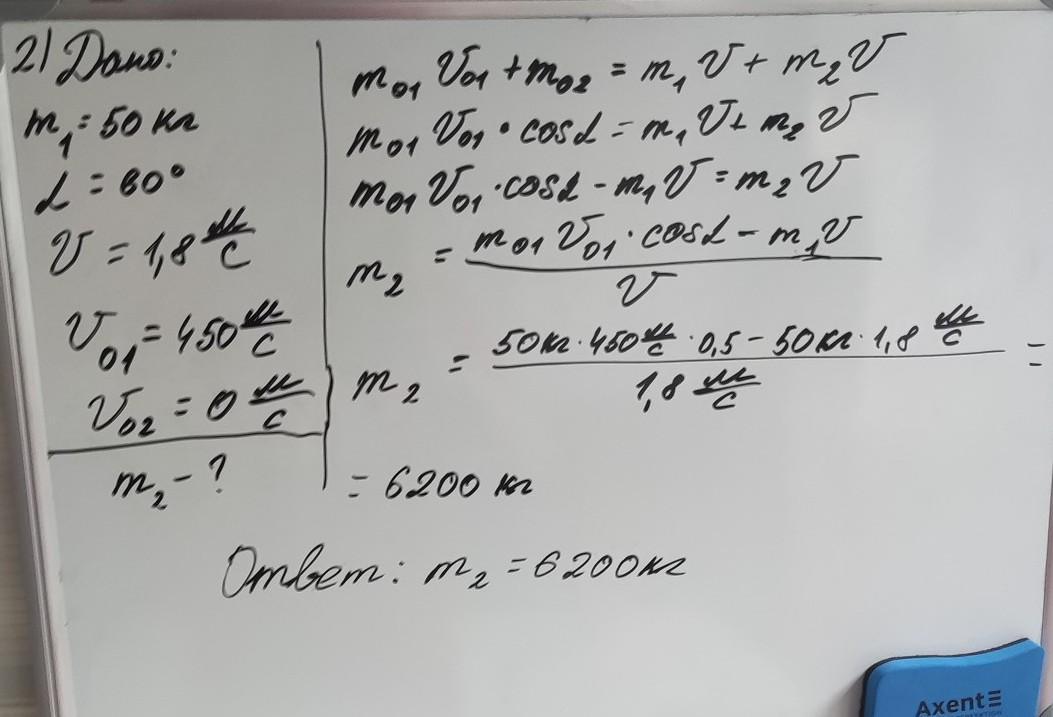 2) Дано:
m₁ = 50 кг
α = 60°
V = 1,8 м/с
V₀₁ = 450 м/с
V₀₂ = 0 м/с
m₂ - ?
m₀₁ V₀₁ + m₀₂ = m₁ V + m₂ V
m₀₁ V₀₁ · cosα = m₁ V + m₂ V
m₀₁ V₀₁ · cosα - m₁ V = m₂ V
m₂ = (m₀₁ V₀₁ · cosα - m₁ V) / V
m₂ = (50 кг · 450 м/с · 0,5 - 50 кг · 1,8 м/с) / (1,8 м/с) =
= 6200 кг
Ответ: m₂ = 6200 кг
Axent